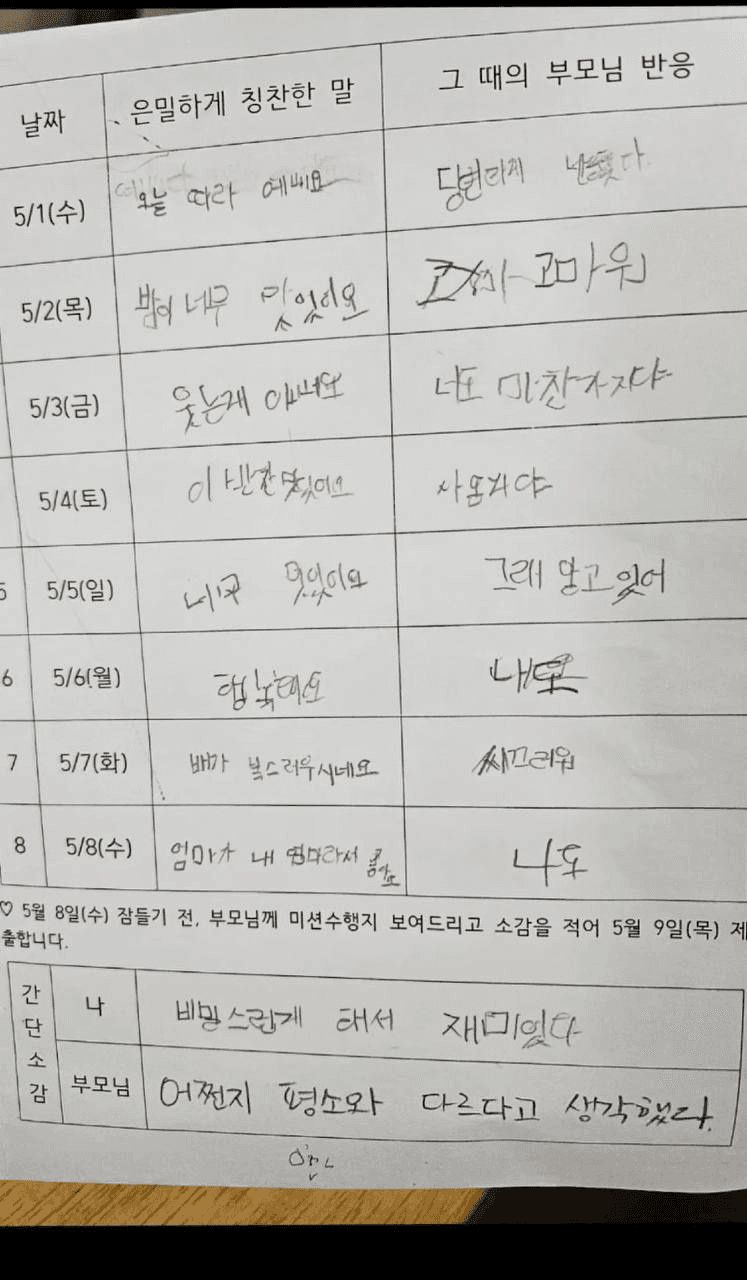 날짜 은밀하게 칭찬한 말 그 때의 부모님 반응
5/1(수) 오늘 따라 예뻐요
5/2(목) 밥이 너무 맛있어요 고마워
5/3(금) 웃는게 너도 마찬가지야
5/4(토) 이 반찬 맛있어요
5/5(일) 그래 알고 있어
6 5/6(월) 행복해요
7 5/7(화) 배가 복스러우시네요 씨끄러워
8 5/8(수) 엄마가 내 엄마라서 나도
♡ 5월 8일(수) 잠들기 전, 부모님께 미션수행지 보여드리고 소감을 적어 5월 9일(목) 제
출합니다.
간단소감
나 비밀스럽게 해서 재미있다
부모님 어쩐지 평소와 다르다고 생각했다.